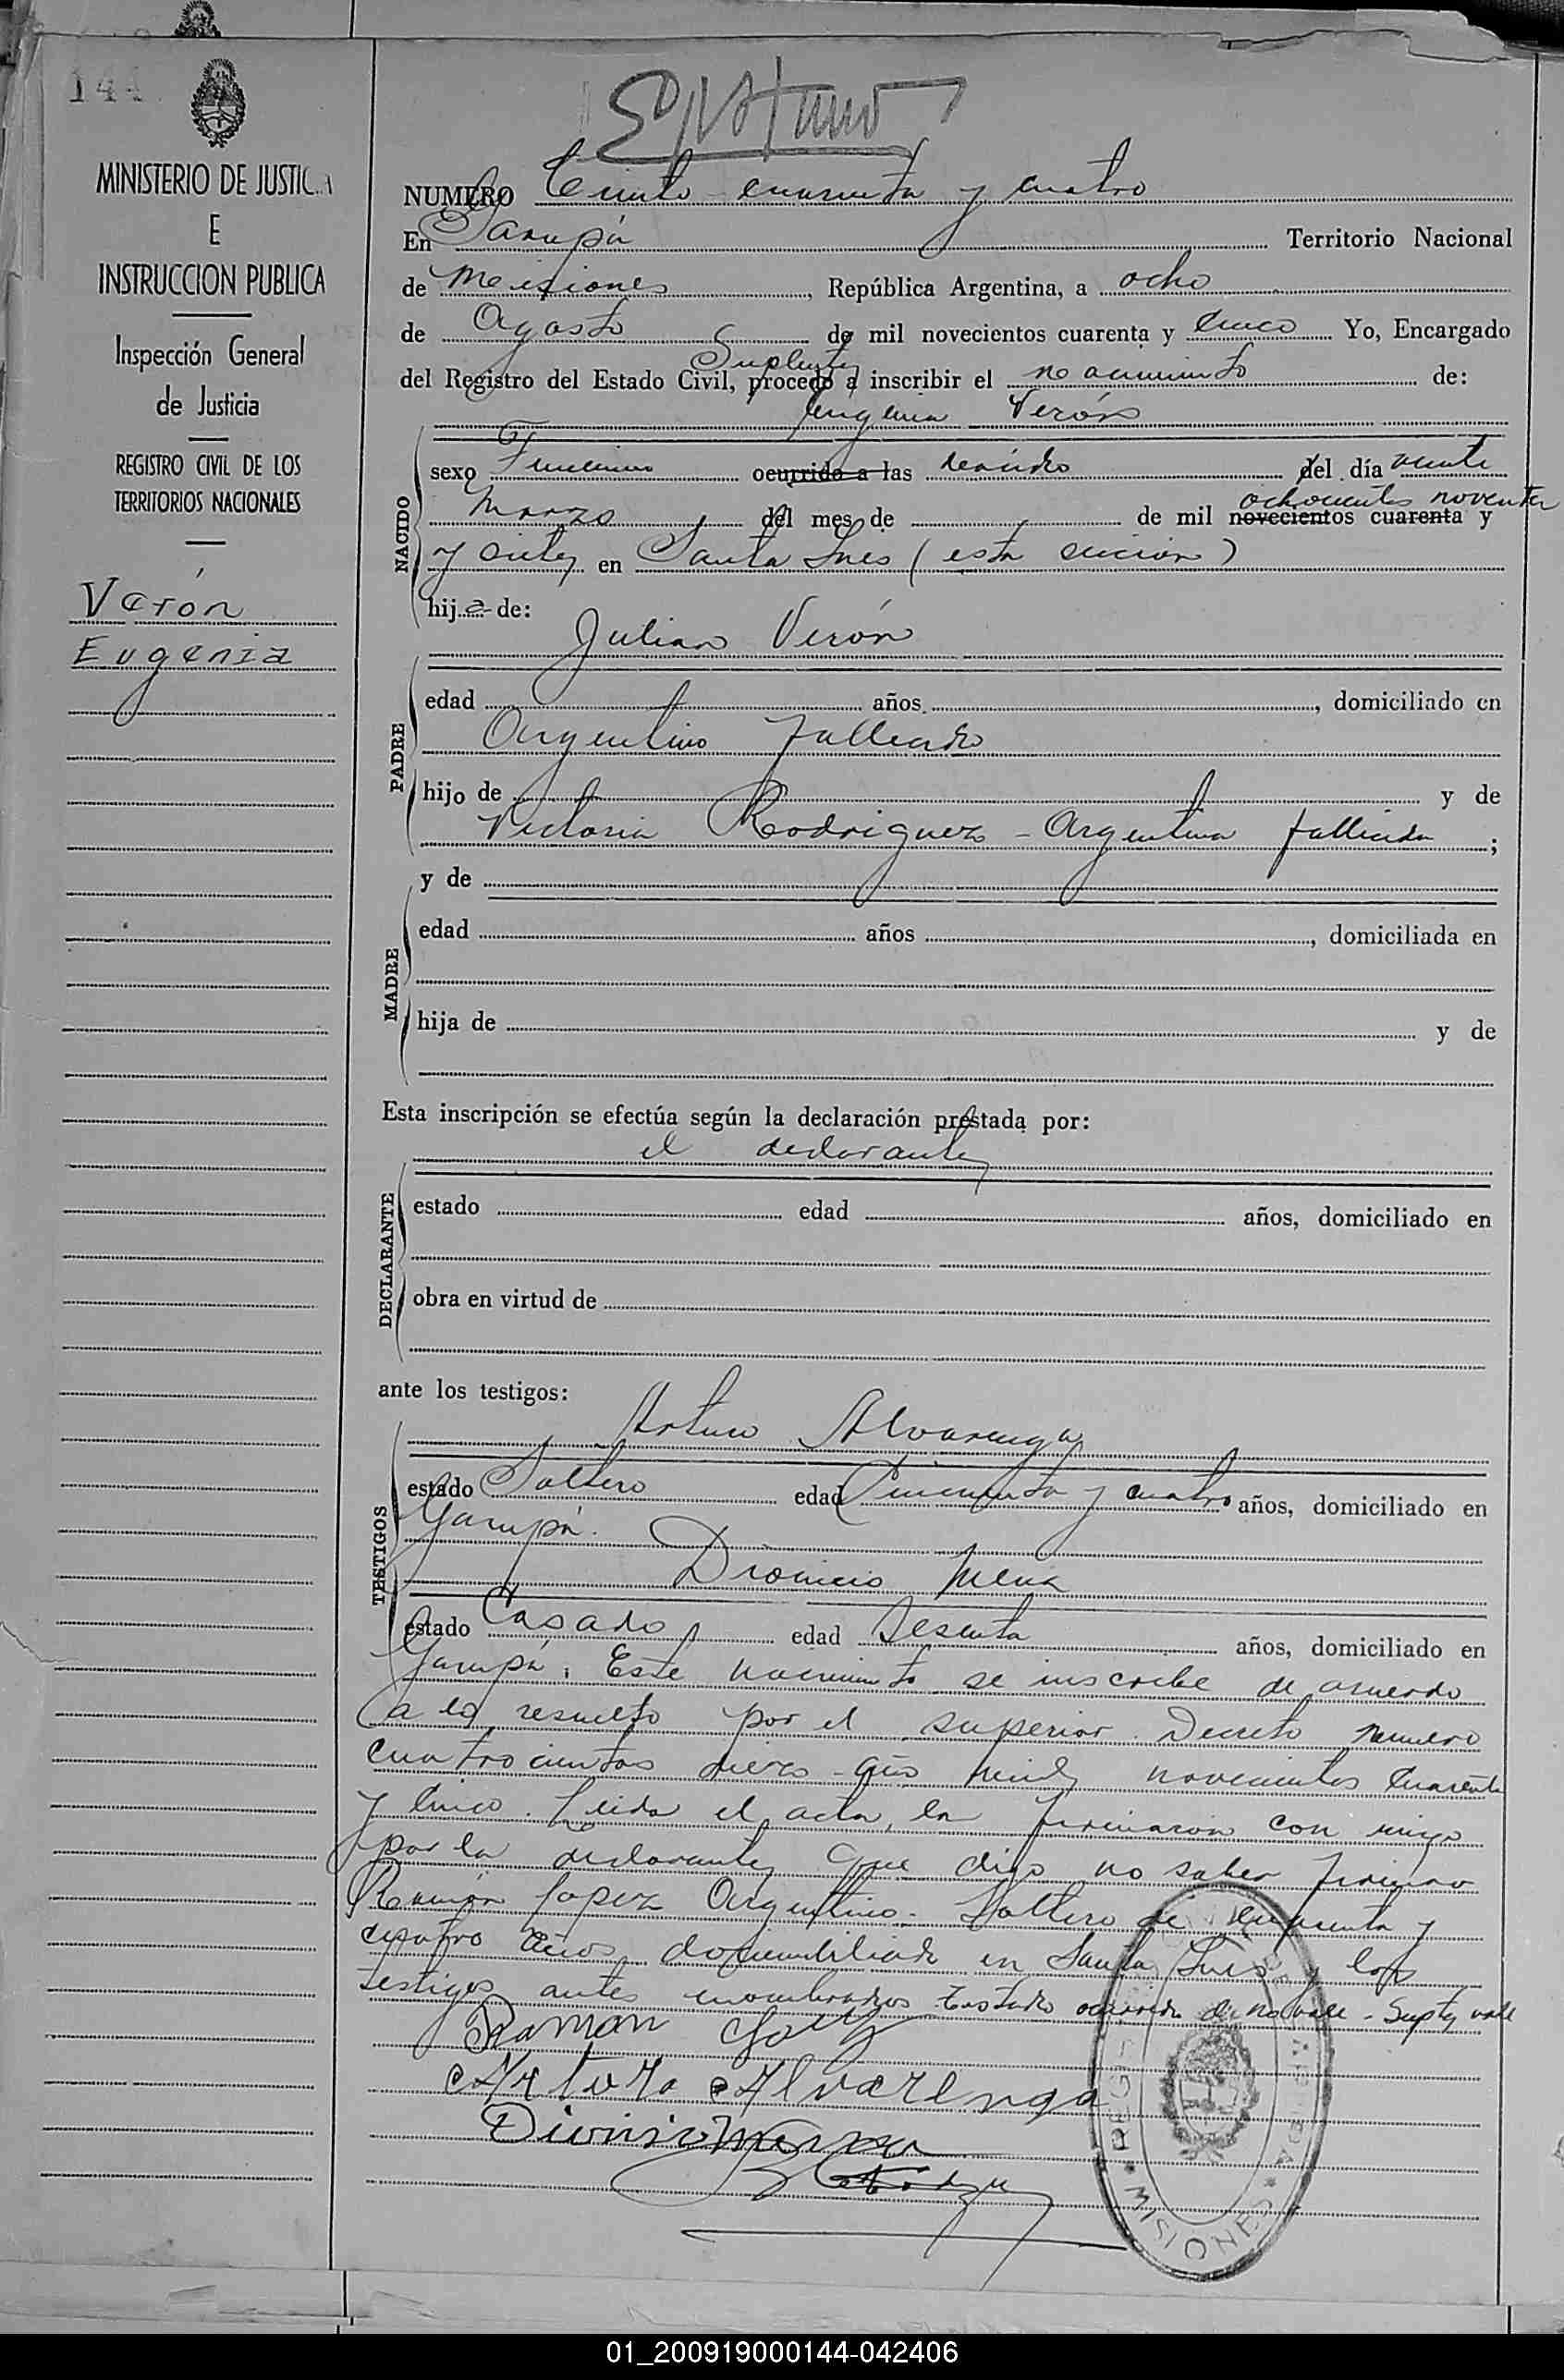 144
MINISTERIO DE JUSTICIA
E
INSTRUCCION PUBLICA
Inspección General
de Justicia
REGISTRO CIVIL DE LOS
TERRITORIOS NACIONALES
Verón
Eugenia
NUMERO Ciento cuarenta y cuatro
En Garupá Territorio Nacional
de Misiones, República Argentina, a ocho
de Agosto de mil novecientos cuarenta y cinco Yo, Encargado
Suplente
del Registro del Estado Civil, procedo a inscribir el nacimiento de:
Eugenia Verón
NACIDO
sexo Femenino ocurrido a las del día veinte
ochocientos noventa
Marzo del mes de de mil novecientos cuarenta y
y siete en Santa Ines (esta sección)
hija de:
Julian Verón
PADRE
edad años, domiciliado en
Argentino fallecido
hijo de y de
Victoria Rodriguez - Argentina fallecida;
y de
MADRE
edad años, domiciliada en
hija de y de
Esta inscripción se efectúa según la declaración prestada por:
el declarante
DECLARANTE
estado edad años, domiciliado en
obra en virtud de
ante los testigos:
Arturo Alvarenga
TESTIGOS
estado Soltero edad Cincuenta y cuatro años, domiciliado en
Garupá.
Dionicio Mena
estado Casado edad Sesenta años, domiciliado en
Garupá. Este nacimiento se inscribe de acuerdo
a lo resuelto por el superior Decreto numero
cuatrocientos diez año mil novecientos cuarenta
y cinco. Leida el acta, la firmaron con migo
por la declarante que dijo no saber firmar
Ramón Lopez Argentino. Soltero de cuarenta y
cuatro años domiciliado en Santa Ines y los
testigos antes nombrados Testado ocurrido a no vale - Suplte vale
Ramon
Arturo Alvarenga
Dionisio Mena
MISIONES
01_200919000144-042406